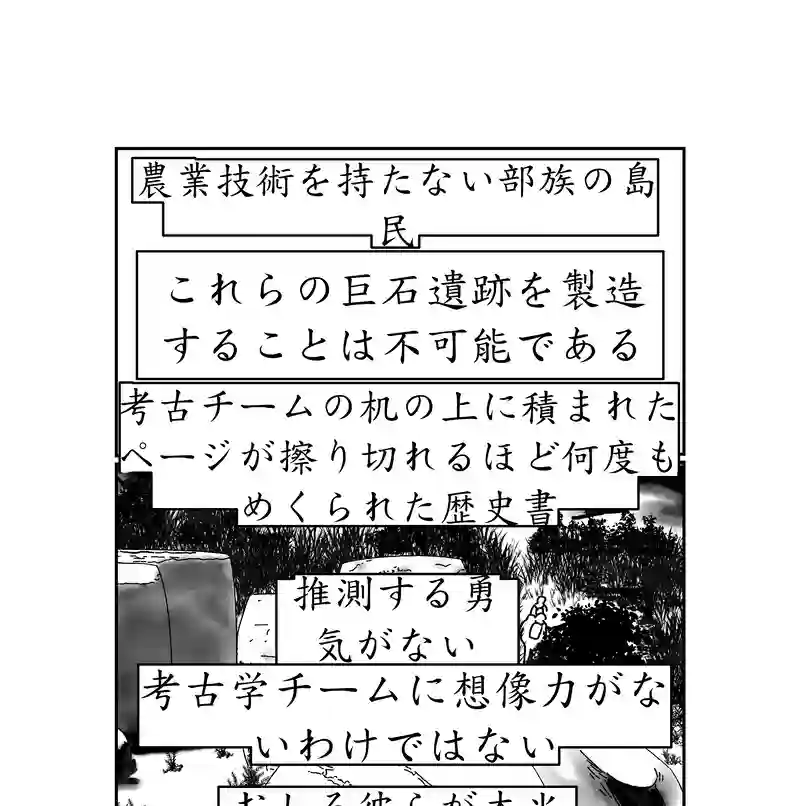 農業技術を持たない部族の島
民
これらの巨石遺跡を製造
することは不可能である
考古チームの机の上に積まれた
ページが擦り切れるほど何度も
めくられた歴史書
推測する勇
気がない
考古学チームに想像力がな
いわけではない
むしろ彼らが本当